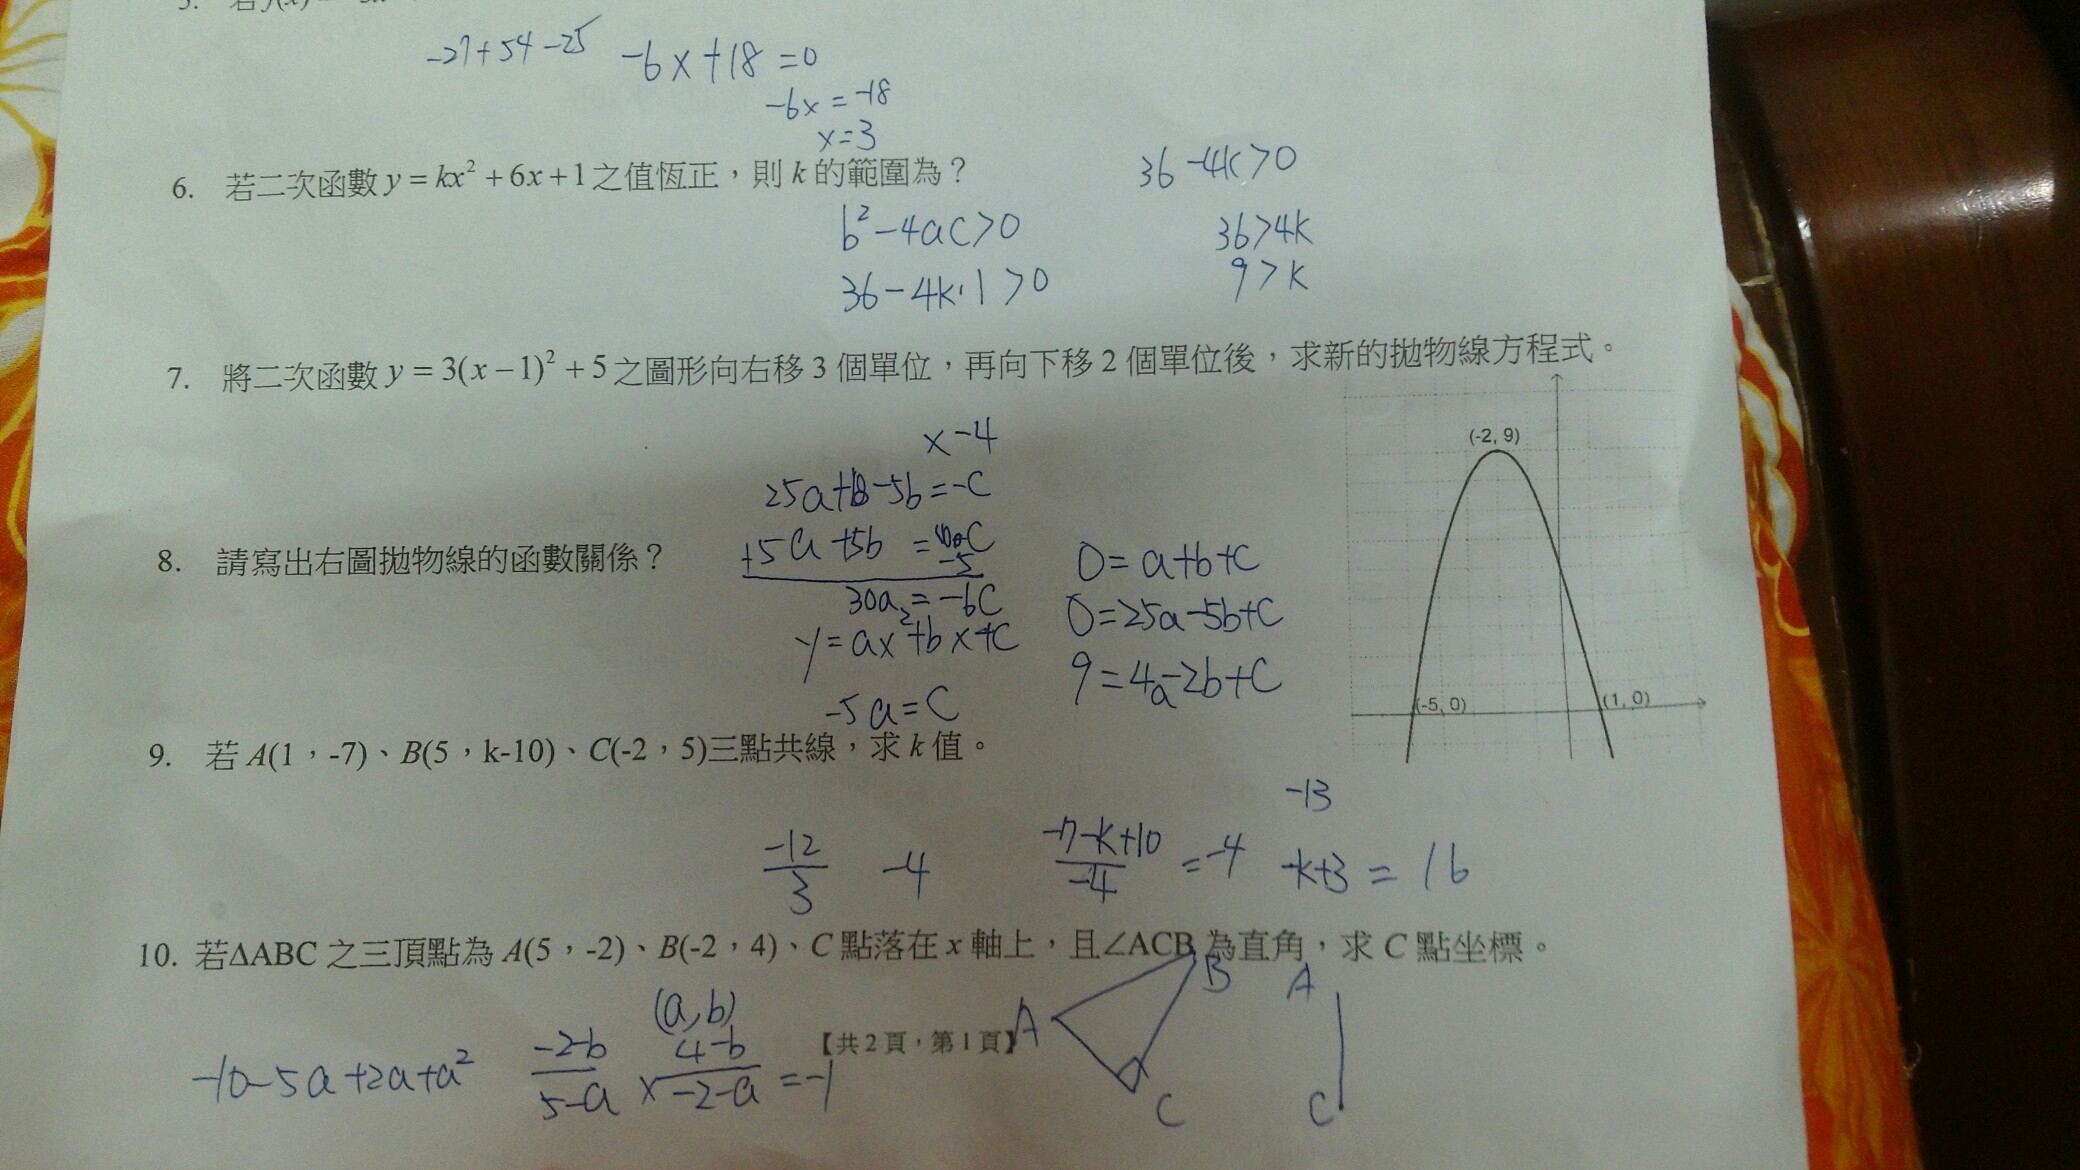 -27+54-25 -6x+18=0
-6x=-18
x=3
6. 若二次函數 y = kx² + 6x + 1 之值恆正，則 k 的範圍為？
36-4k>0
b²-4ac>0
36>4k
36-4k·1>0
9>k
7. 將二次函數 y = 3(x - 1)² + 5 之圖形向右移 3 個單位，再向下移 2 個單位後，求新的拋物線方程式。
x-4
(-2, 9)
8. 請寫出右圖拋物線的函數關係？
30a=-6c
y=ax²+bx+c
-5a=c
0=a+b+c
0=25a-5b+c
9=4a-2b+c
(-5, 0)
(1, 0)
9. 若 A(1，-7)、B(5，k-10)、C(-2，5)三點共線，求 k 值。
-13
-12/3 -4 (-7-k+10)/-4 =-4 -k+3 = 16
10. 若ΔABC 之三頂點為 A(5，-2)、B(-2，4)、C 點落在 x 軸上，且∠ACB 為直角，求 C 點坐標。
A B C
A C
(a,b)
-10-5a+2a+a² (-2-b)/(5-a) × (4-b)/(-2-a) =-1
【共 2 頁，第 1 頁】